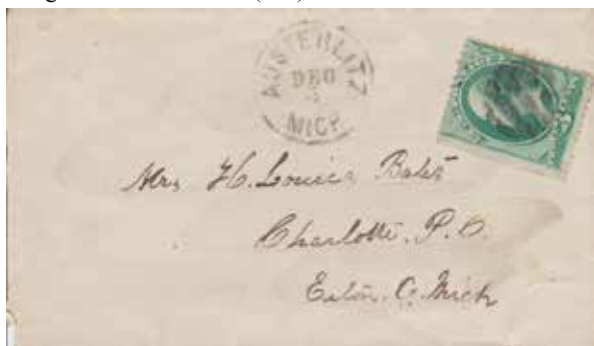 AUSTERLITZ
DEC
MICH
Mrs H. Louisa Bates
Charlotte. P. O.
Eaton. C. Mich